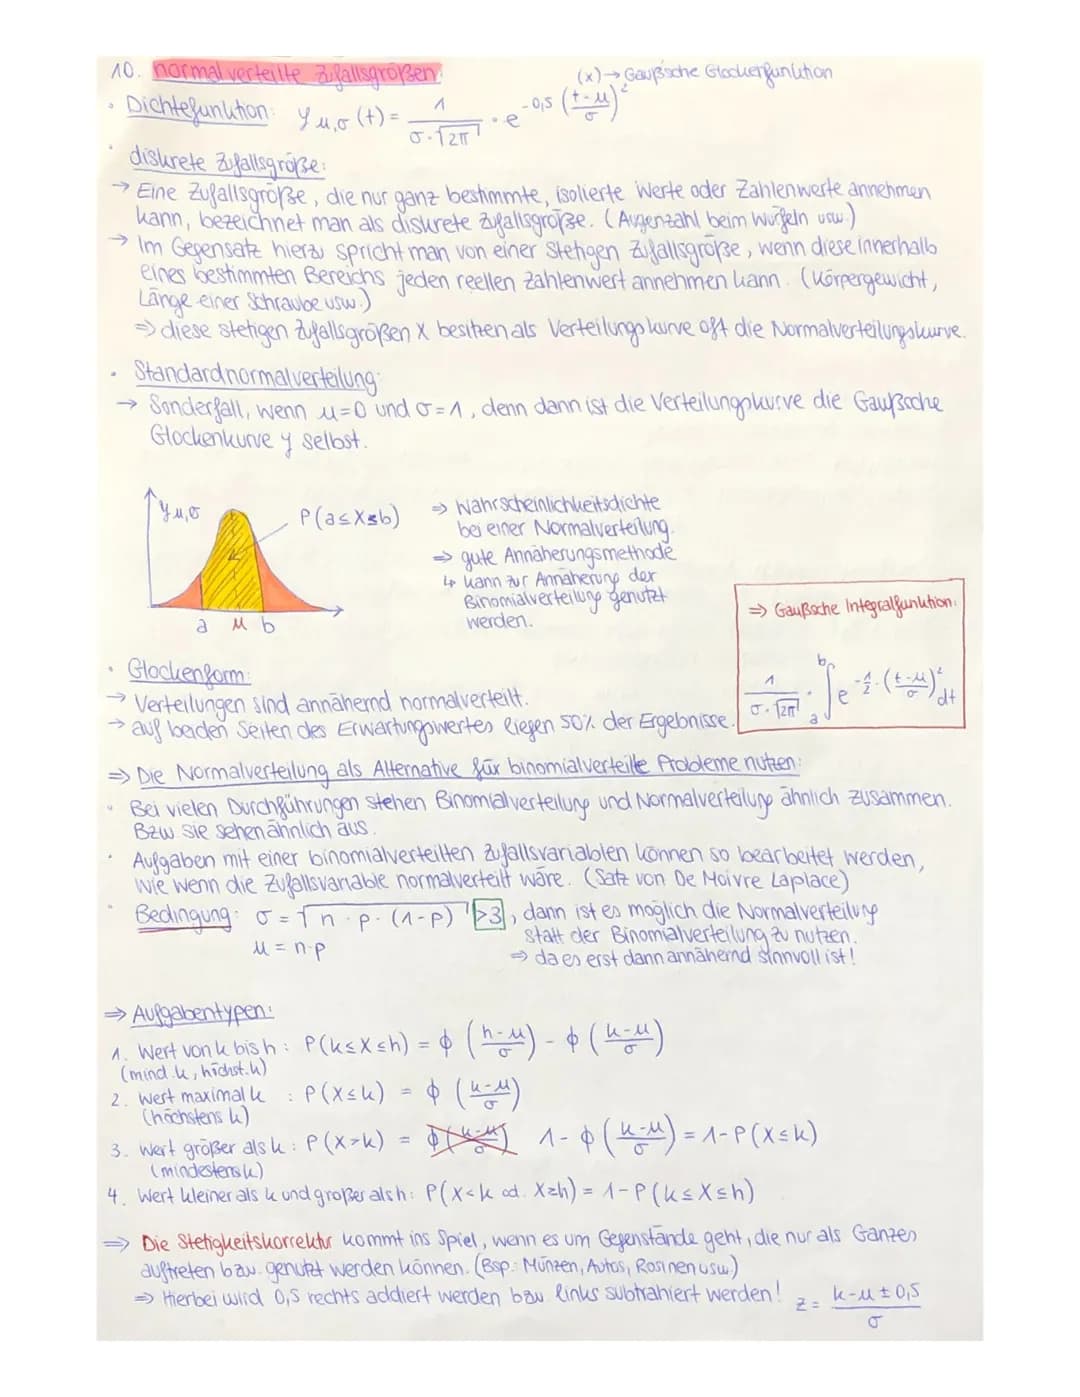 10. normalverteilte Zufallsgrößen:
(x) → Gauß'sche Glockenfunktion
• Dichtefunktion: φ μ,σ (t) = 1/(σ·√2π) · e^(-0,5 ((t-μ)/σ)²)
• diskrete Zufallsgröße:
→ Eine Zufallsgröße, die nur ganz bestimmte, isolierte Werte oder Zahlenwerte annehmen
kann, bezeichnet man als diskrete Zufallsgröße. (Augenzahl beim Würfeln usw.)
→ Im Gegensatz hierzu spricht man von einer stetigen Zufallsgröße, wenn diese innerhalb
eines bestimmten Bereichs jeden reellen Zahlenwert annehmen kann. (Körpergewicht,
Länge einer Schraube usw.)
⇒ diese stetigen Zufallsgrößen X besitzen als Verteilungskurve oft die Normalverteilungskurve.
• Standardnormalverteilung:
→ Sonderfall, wenn μ=0 und σ=1, denn dann ist die Verteilungskurve die Gaußsche
Glockenkurve φ selbst.
φ μ,σ
P(a≤X≤b)
a μ b
⇒ Wahrscheinlichkeitsdichte
bei einer Normalverteilung.
⇒ gute Annäherungsmethode
↳ kann zur Annäherung der
Binomialverteilung genutzt
werden.
⇒ Gaußsche Integralfunktion:
1/(σ·√2π) · ∫ₐᵇ e^(-1/2·((t-μ)/σ)²) dt
• Glockenform:
→ Verteilungen sind annähernd normalverteilt.
→ auf beiden Seiten des Erwartungswertes liegen 50% der Ergebnisse.
⇒ Die Normalverteilung als Alternative für binomialverteilte Probleme nutzen:
• Bei vielen Durchführungen stehen Binomialverteilung und Normalverteilung ähnlich zusammen.
Bzw sie sehen ähnlich aus.
• Aufgaben mit einer binomialverteilten Zufallsvariablen können so bearbeitet werden,
wie wenn die Zufallsvariable normalverteilt wäre. (Satz von De Moivre Laplace)
• Bedingung: σ = √n · p · (1-p) >3, dann ist es möglich die Normalverteilung
statt der Binomialverteilung zu nutzen.
μ = n·p
⇒ da es erst dann annähernd sinnvoll ist!
⇒ Aufgabentypen:
1. Wert von k bis h: P(k≤X≤h) = ϕ ((h-μ)/σ) - ϕ ((k-μ)/σ)
(mind. k, höchst. h)
2. Wert maximal k : P(X≤k) = ϕ ((k-μ)/σ)
(höchstens k)
3. Wert größer als k: P(X>k) = ϕ((k-μ)/σ) 1-ϕ ((k-μ)/σ) = 1-P(X≤k)
(mindestens k)
4. Wert kleiner als k und größer als h: P(X<k od. X≥h) = 1-P(k≤X≤h)
⇒ Die Stetigkeitskorrektur kommt ins Spiel, wenn es um Gegenstände geht, die nur als Ganzes
auftreten bzw. genutzt werden können. (Bsp.: Münzen, Autos, Rosinen usw.)
⇒ Hierbei wird 0,5 rechts addiert werden bzw links subtrahiert werden! z = (k-μ±0,5)/σ